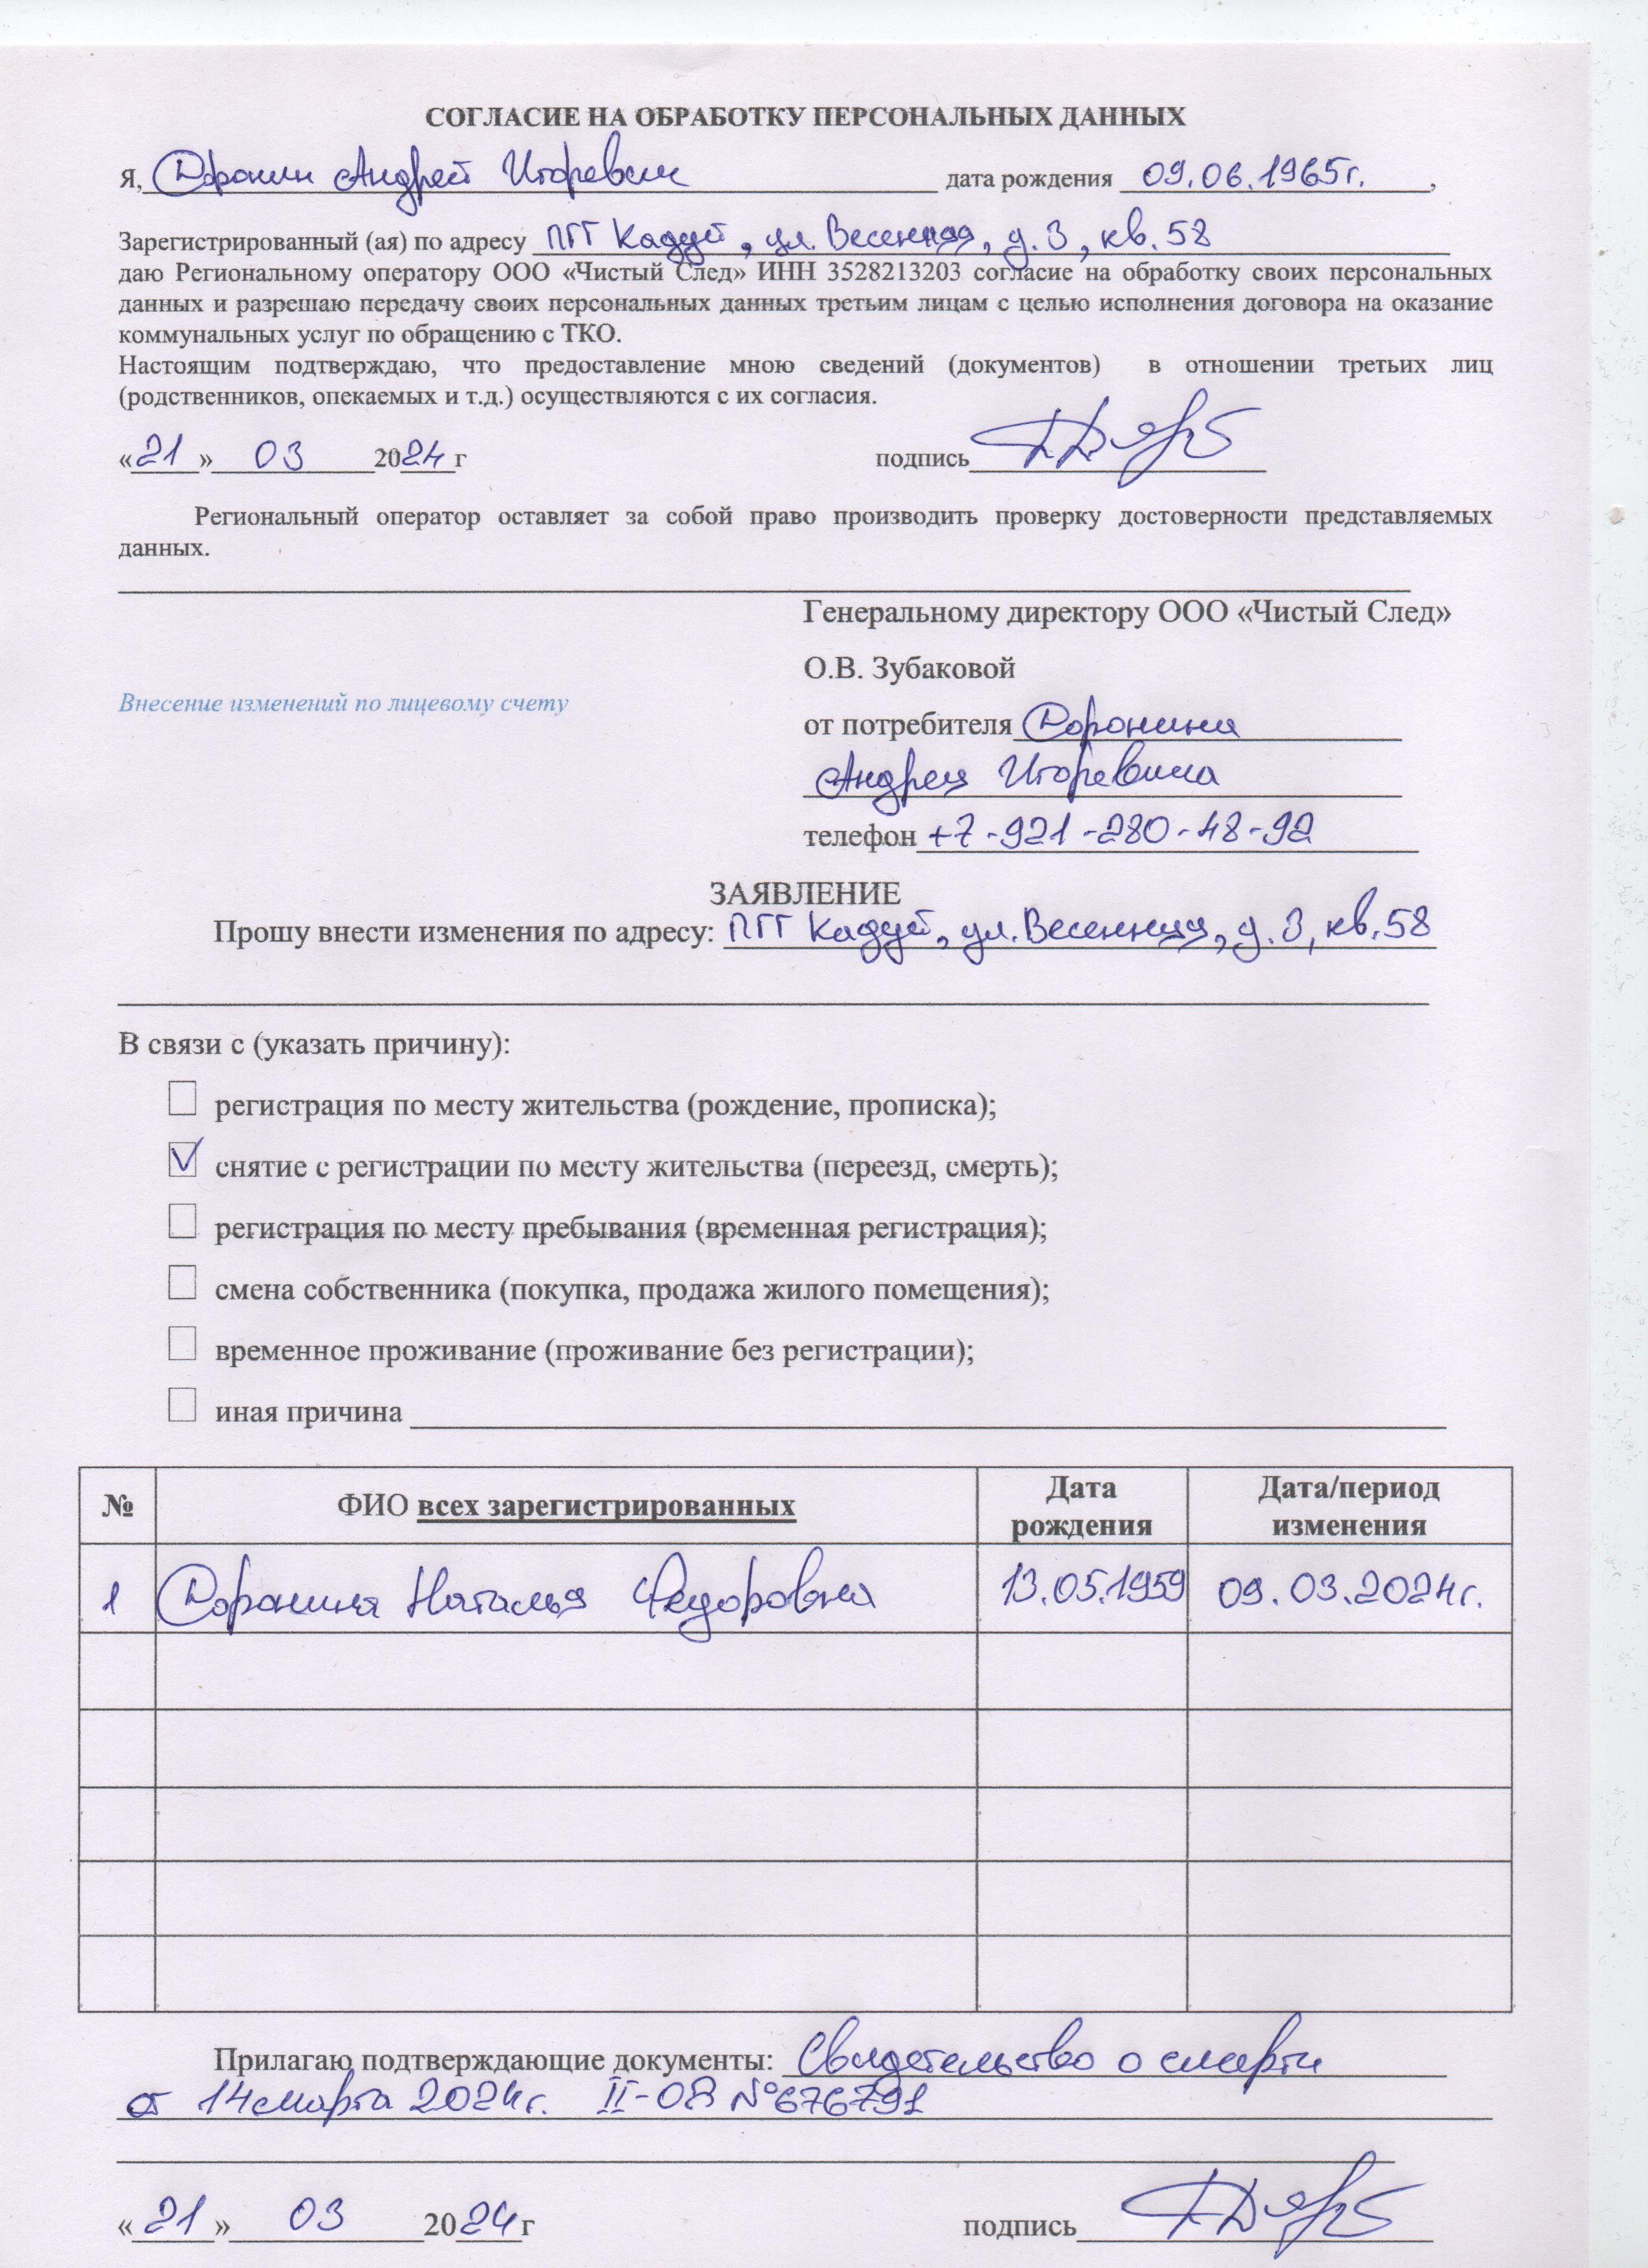 СОГЛАСИЕ НА ОБРАБОТКУ ПЕРСОНАЛЬНЫХ ДАННЫХ
Я, Доронин Андрей Игоревич дата рождения 09.06.1965г.,
Зарегистрированный (ая) по адресу ПГТ Кадуй, ул. Весенняя, д. 3, кв. 58
даю Региональному оператору ООО «Чистый След» ИНН 3528213203 согласие на обработку своих персональных
данных и разрешаю передачу своих персональных данных третьим лицам с целью исполнения договора на оказание
коммунальных услуг по обращению с ТКО.
Настоящим подтверждаю, что предоставление мною сведений (документов) в отношении третьих лиц
(родственников, опекаемых и т.д.) осуществляются с их согласия.
«21» 03 2024г подпись
Региональный оператор оставляет за собой право производить проверку достоверности представляемых
данных.
Генеральному директору ООО «Чистый След»
О.В. Зубаковой
Внесение изменений по лицевому счету
от потребителя Доронина
Андрея Игоревича
телефон +7-921-280-48-92
ЗАЯВЛЕНИЕ
Прошу внести изменения по адресу: ПГТ Кадуй, ул. Весенняя, д. 3, кв. 58
В связи с (указать причину):
регистрация по месту жительства (рождение, прописка);
V снятие с регистрации по месту жительства (переезд, смерть);
регистрация по месту пребывания (временная регистрация);
смена собственника (покупка, продажа жилого помещения);
временное проживание (проживание без регистрации);
иная причина
№ ФИО всех зарегистрированных Дата рождения Дата/период изменения
1 Доронина Наталья Федоровна 13.05.1959 09.03.2024г.
Прилагаю подтверждающие документы: Свидетельство о смерти
от 14 марта 2024г. II-ОВ №676791
«21» 03 2024г подпись